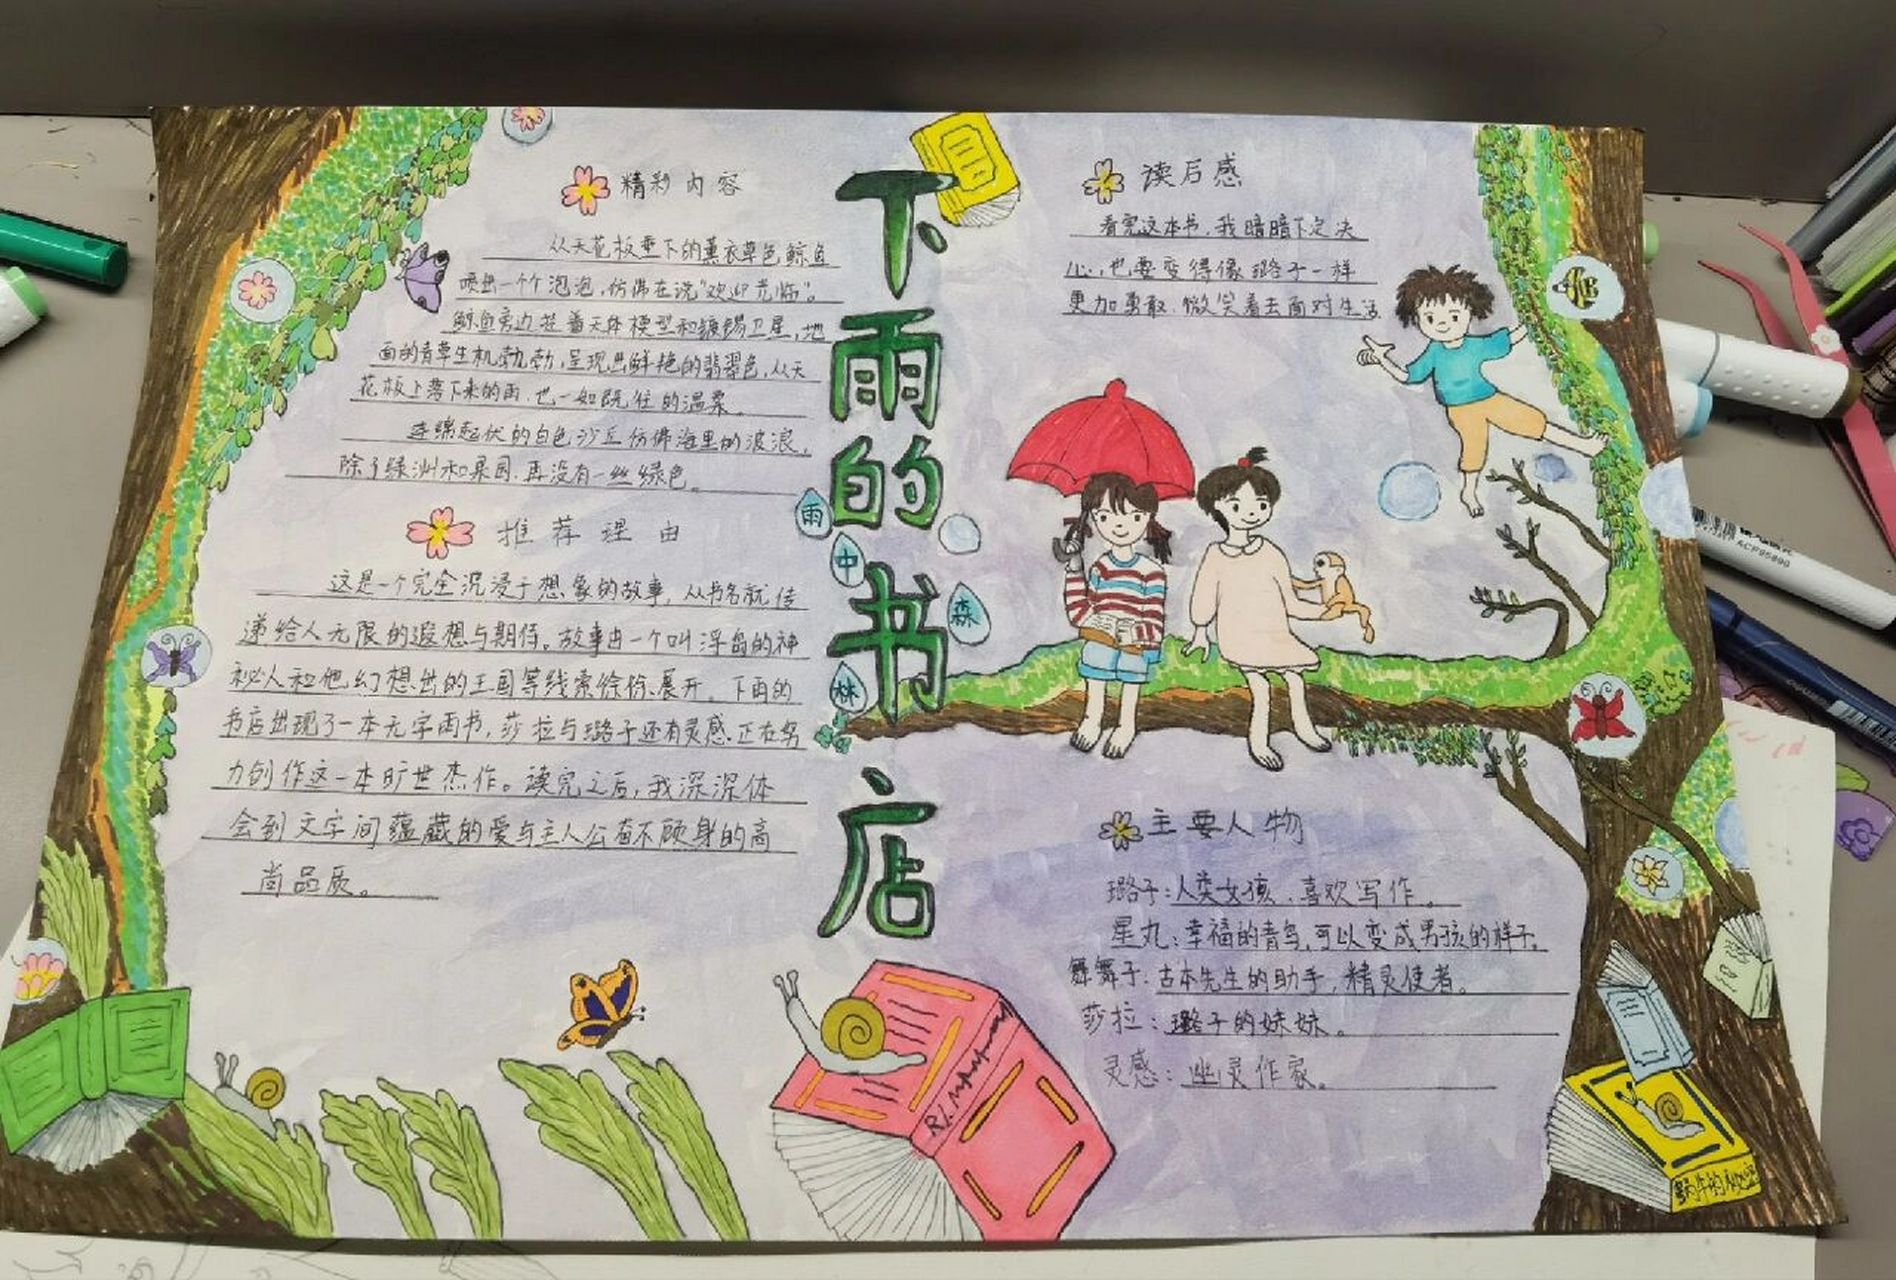 下雨的书店
雨
中
森
林
精彩内容
从天花板垂下的薰衣草色鲸鱼
喷出一个个泡泡，仿佛在说“欢迎光临”。
鲸鱼旁边挂着天体模型和镀锡卫星，地
面的青草生机勃勃，呈现出鲜艳的翡翠色，从天
花板上落下来的雨，也一如既往的温柔。
连绵起伏的白色沙丘仿佛海里的波浪，
除了绿洲和果园，再没有一丝绿色。
推荐理由
这是一个完全沉浸于想象的故事，从书名就传
递给人无限的遐想与期待。故事由一个叫浮岛的神
秘人和他幻想出的王国等线索徐徐展开。下雨的
书店出现了一本无字雨书，莎拉与璐子还有灵感正在努
力创作这一本旷世杰作。读完之后，我深深体
会到文字间蕴藏的爱与主人公奋不顾身的高
尚品质。
读后感
看完这本书，我暗暗下定决
心，也要变得像璐子一样
更加勇敢，微笑着去面对生活
主要人物
璐子：人类女孩，喜欢写作。
星丸：幸福的青鸟，可以变成男孩的样子。
舞舞子：古本先生的助手，精灵使者。
莎拉：璐子的妹妹。
灵感：幽灵作家。